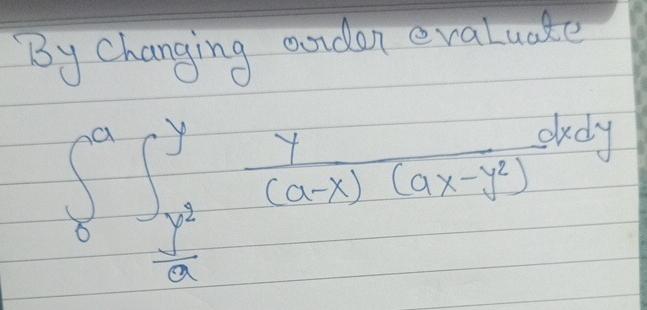 By changing order evaluate
∫₀ᵃ ∫_{y²/a}^{y} y / ((a-x) (ax-y²)) dxdy